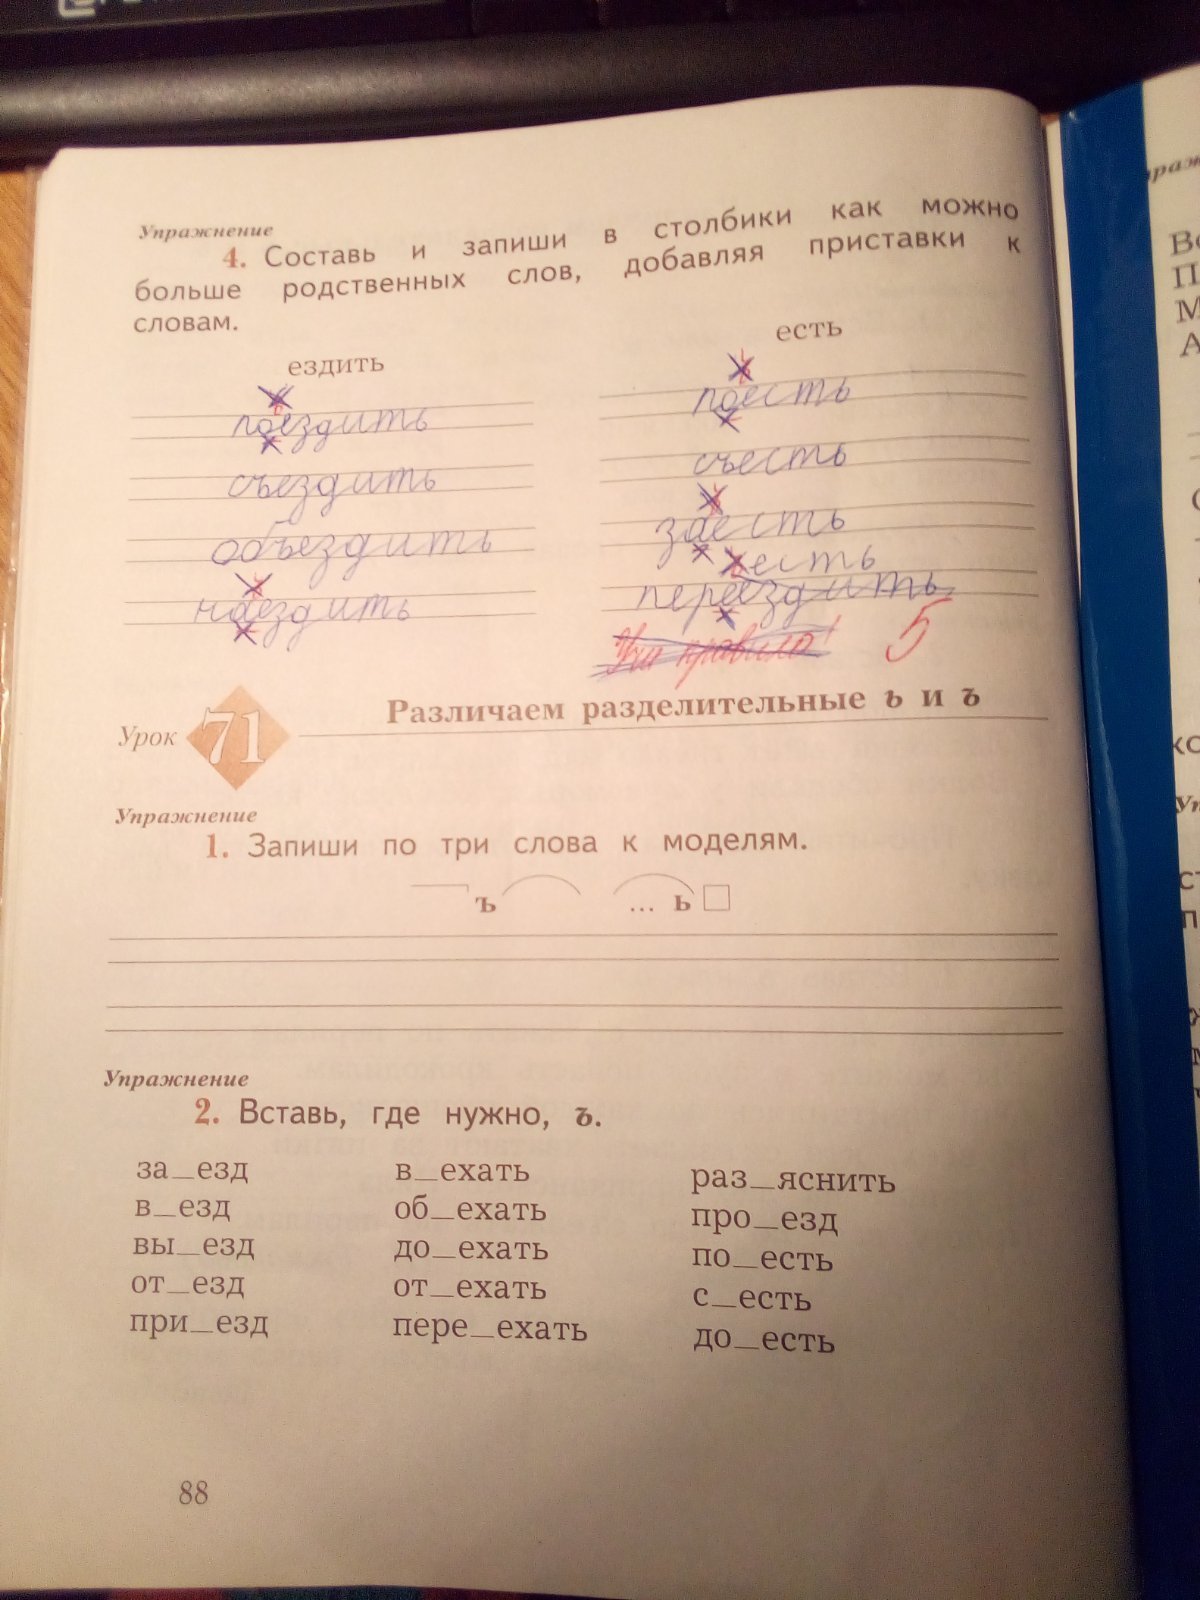 Упражнение
4. Составь и запиши в столбики как можно
больше родственных слов, добавляя приставки к
словам.
ездить
есть
поездить
поесть
съездить
съесть
объездить
заесть
есть
наездить
переездить
Учи правило!
5
Урок 71
Различаем разделительные ь и ъ
Упражнение
1. Запиши по три слова к моделям.
ъ ... ь
Упражнение
2. Вставь, где нужно, ъ.
за_езд в_ехать раз_яснить
в_езд об_ехать про_езд
вы_езд до_ехать по_есть
от_езд от_ехать с_есть
при_езд пере_ехать до_есть
88